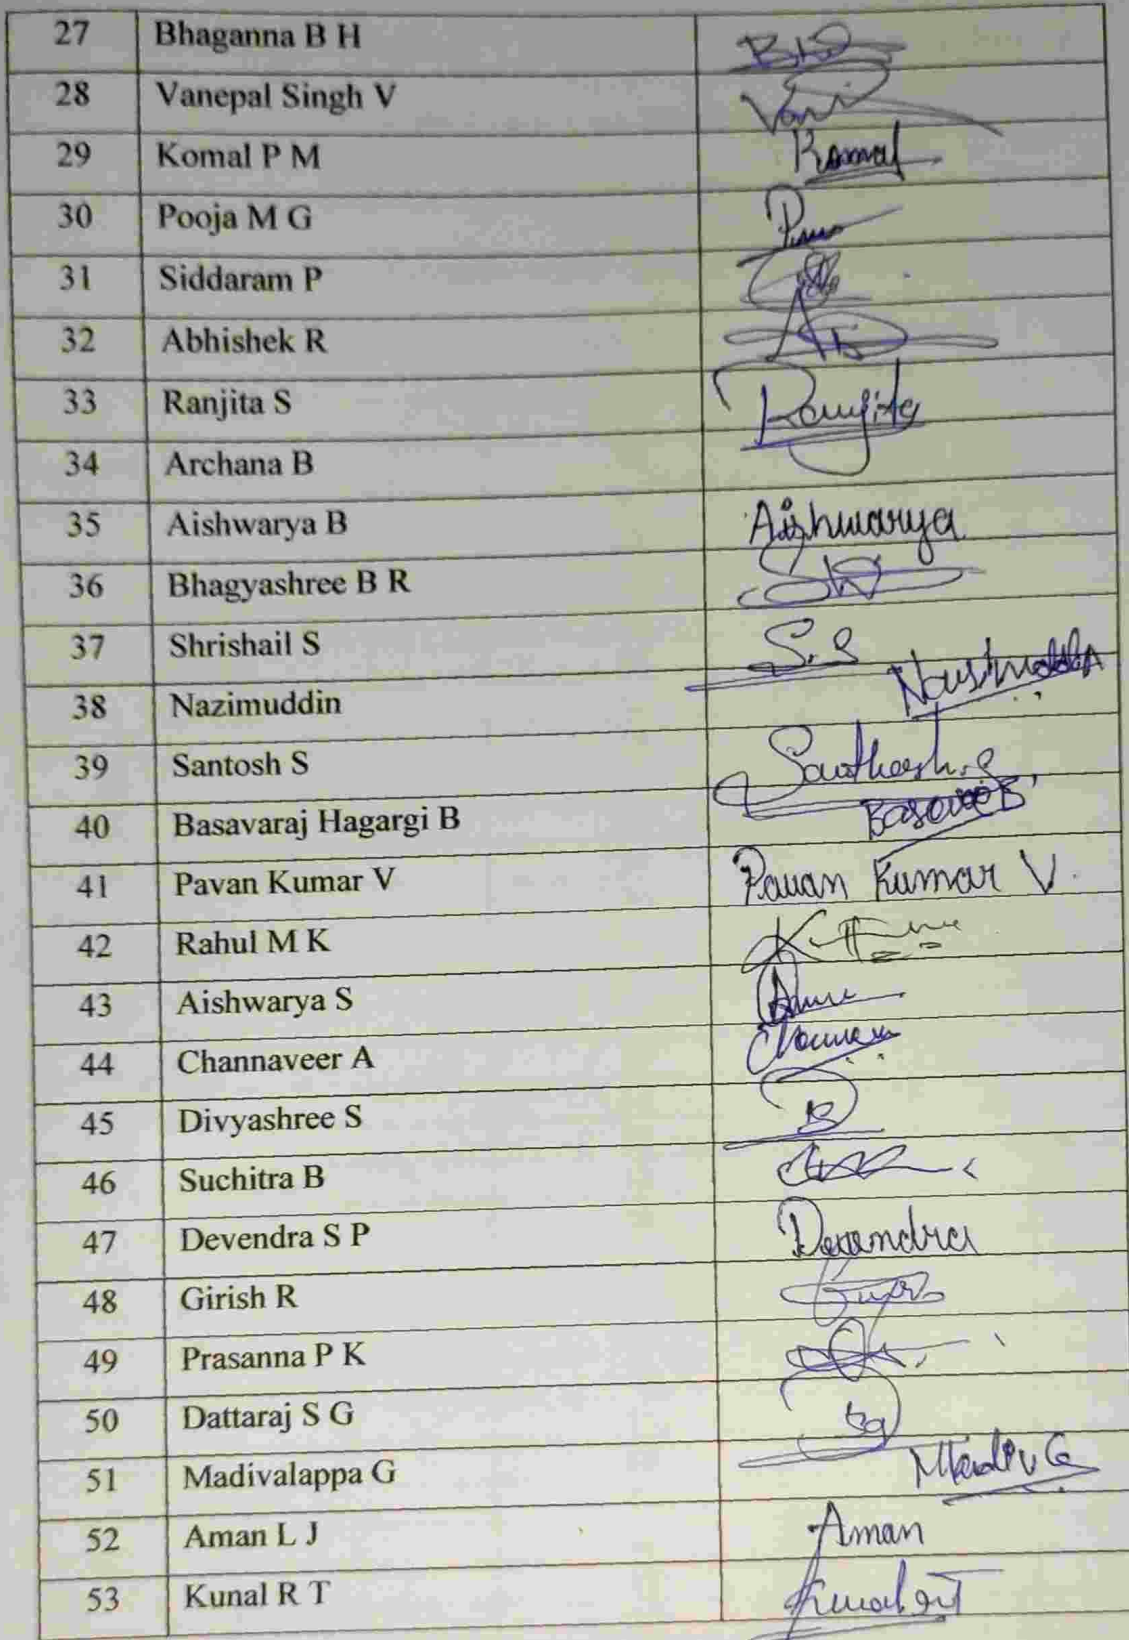 27 Bhaganna B H
28 Vanepal Singh V
29 Komal P M Komal
30 Pooja M G
31 Siddaram P
32 Abhishek R
33 Ranjita S Ranjita
34 Archana B
35 Aishwarya B Aishwarya
36 Bhagyashree B R
37 Shrishail S S.S
38 Nazimuddin
39 Santosh S Santhosh.S
40 Basavaraj Hagargi B
41 Pavan Kumar V Pavan Kumar V.
42 Rahul M K
43 Aishwarya S
44 Channaveer A
45 Divyashree S
46 Suchitra B
47 Devendra S P Devendra
48 Girish R
49 Prasanna P K
50 Dattaraj S G
51 Madivalappa G
52 Aman L J Aman
53 Kunal R T